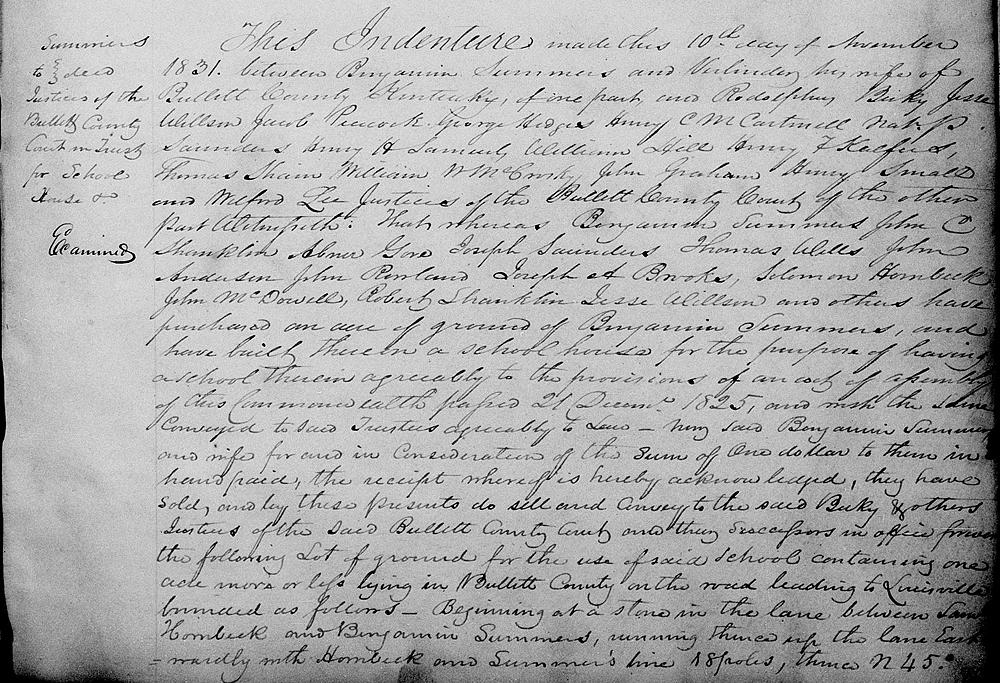 Summers
to deed
Justices of the
Bullett County
Court in Trust
for School
House &
Examined
This Indenture made this 10th day of November
1831. between Benjamin Summers and Verlinda his wife of
Bullett County Kentucky, of one part and Rodolphus Bicky Jesse
Willson Jacob Peacock George Hedges Henry C McCartmell Natl. P.
Saunders Henry H Samuels, William Hill Henry F Kalfus,
Thomas Shain William W McCrosky John Graham Henry Small
and Wilford Lee Justices of the Bullett County Court of the other
part Witnesseth: That whereas Benjamin Summers John C
Shanklin Abner Gore Joseph Saunders Thomas Wells John
Anderson John Rowland Joseph A Brooks, Solomon Hornbeck
John McDowell, Robert Shanklin Jesse Willson and others have
purchased an acre of ground of Benjamin Summers, and
have built therein a school house for the purpose of having
a school therein agreeably to the provisions of an act of assembly
of this Commonwealth passed 21 Decemr. 1825, and wish the same
Conveyed to said Trustees agreeably to Law – now said Benjamin Summers
and wife for and in Consideration of the Sum of One dollar to them in
hand paid, the receipt whereof is hereby acknowledged, they have
Sold, and by these presents do sell and Convey to the said Bicky & others
Justices of the said Bullett County Court and their Successors in office forever
the following Lot of ground for the use of said School containing one
acre more or less lying in Bullett County on the road leading to Louisville
bounded as follows – Beginning at a stone in the lane between
Hornbeck and Benjamin Summers, running thence up the lane East
=wardly with Hornbeck and Summer's line 18 poles, thence N 45.°